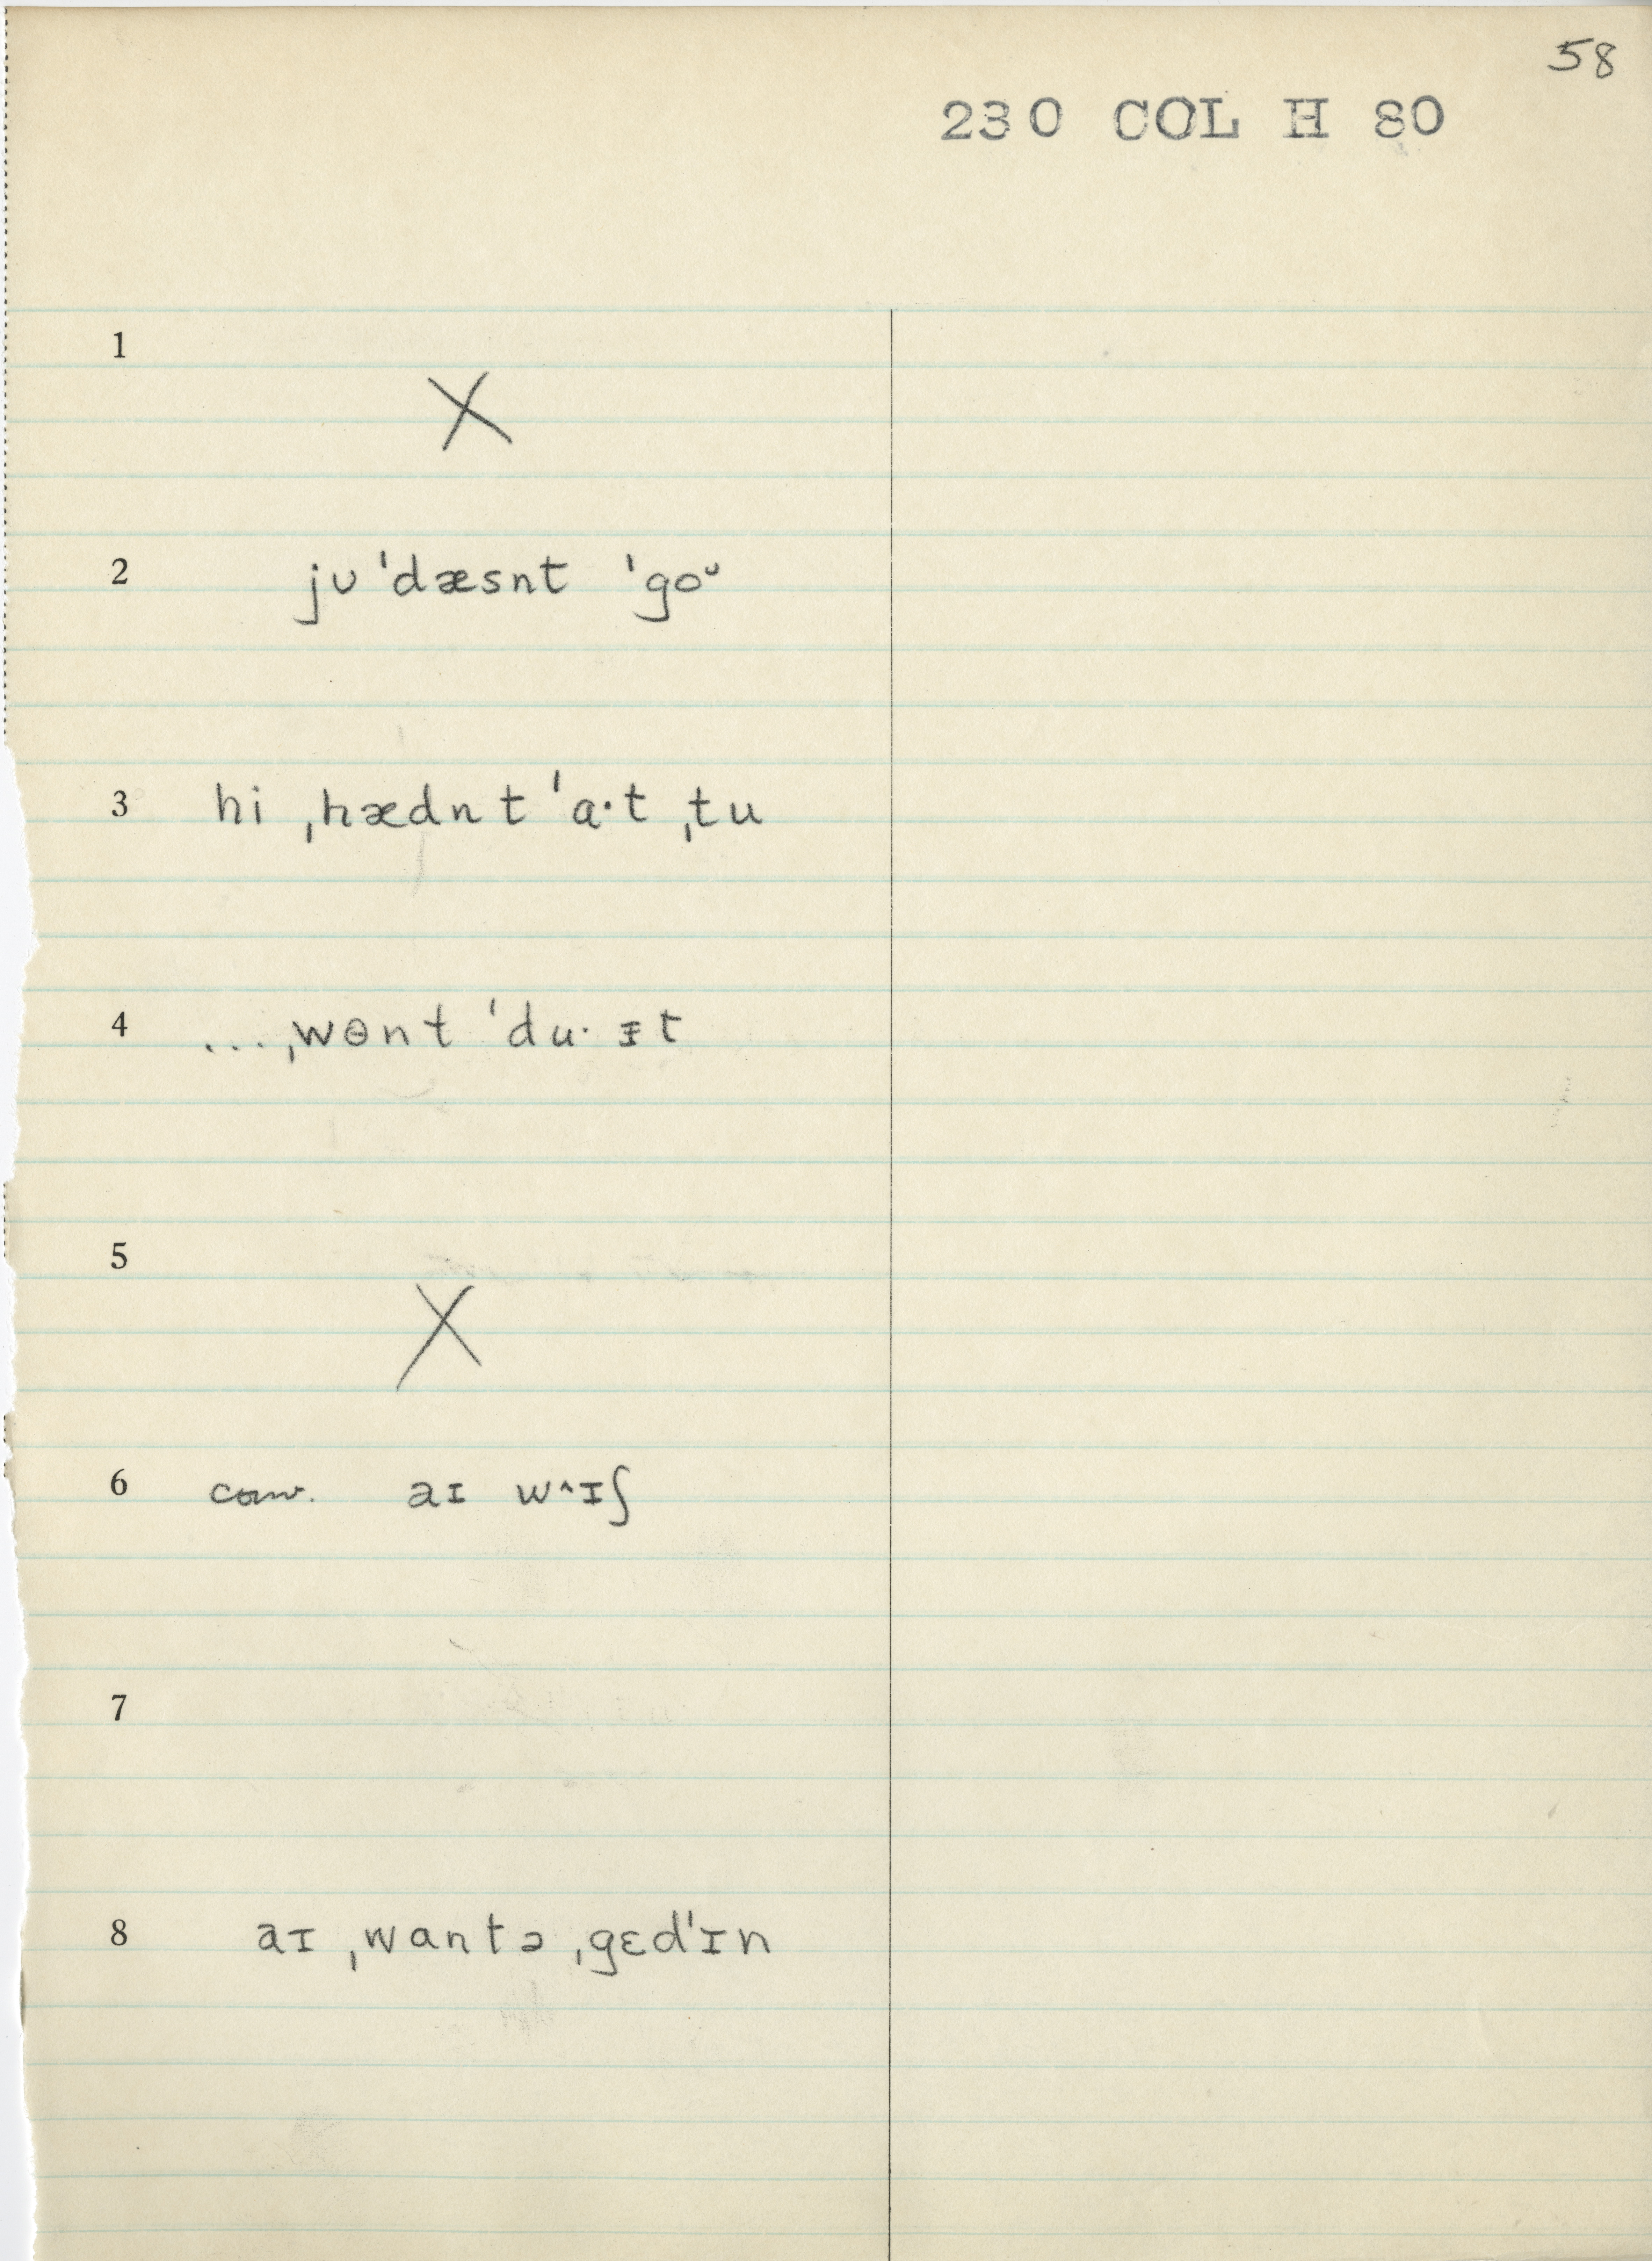 58
230 COL H 80
1
X
2 jʊ ˈdæsnt ˈgoᵕ
3 hi ˌhædnt ˈɑ·t ˌtu
4 ...ˌwɵnt ˈdu· ɪt
5
X
6 conv. aɪ wˆɪʃ
7
8 aɪ ˌwɑntə ˌgɛdˈɪn